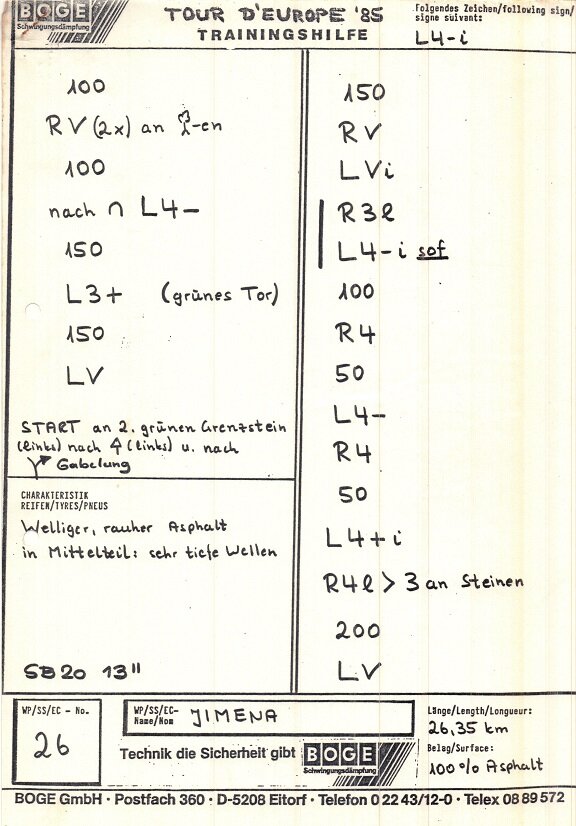 BOGE
Schwingungsdämpfung
TOUR D'EUROPE '85
TRAININGSHILFE
Folgendes Zeichen/following sign/
signe suivant:
L4-i
100
RV (2x) an -en
100
nach ∩ L4-
150
L3+ (grünes Tor)
150
LV
START an 2. grünen Grenzstein
(links) nach (links) u. nach
Gabelung
CHARAKTERISTIK
REIFEN/TYRES/PNEUS
Welliger, rauher Asphalt
in Mittelteil: sehr tiefe Wellen
SB20 13"
150
RV
LVi
R3l
L4-i sof
100
R4
50
L4-
R4
50
L4+i
R4l > 3 an Steinen
200
LV
WP/SS/EC - No.
26
WP/SS/EC-
Name/Nom JIMENA
Technik die Sicherheit gibt BOGE
Schwingungsdämpfung
Länge/Length/Longueur:
26,35 km
Belag/Surface:
100% Asphalt
BOGE GmbH · Postfach 360 · D-5208 Eitorf · Telefon 0 22 43/12-0 · Telex 08 89 572